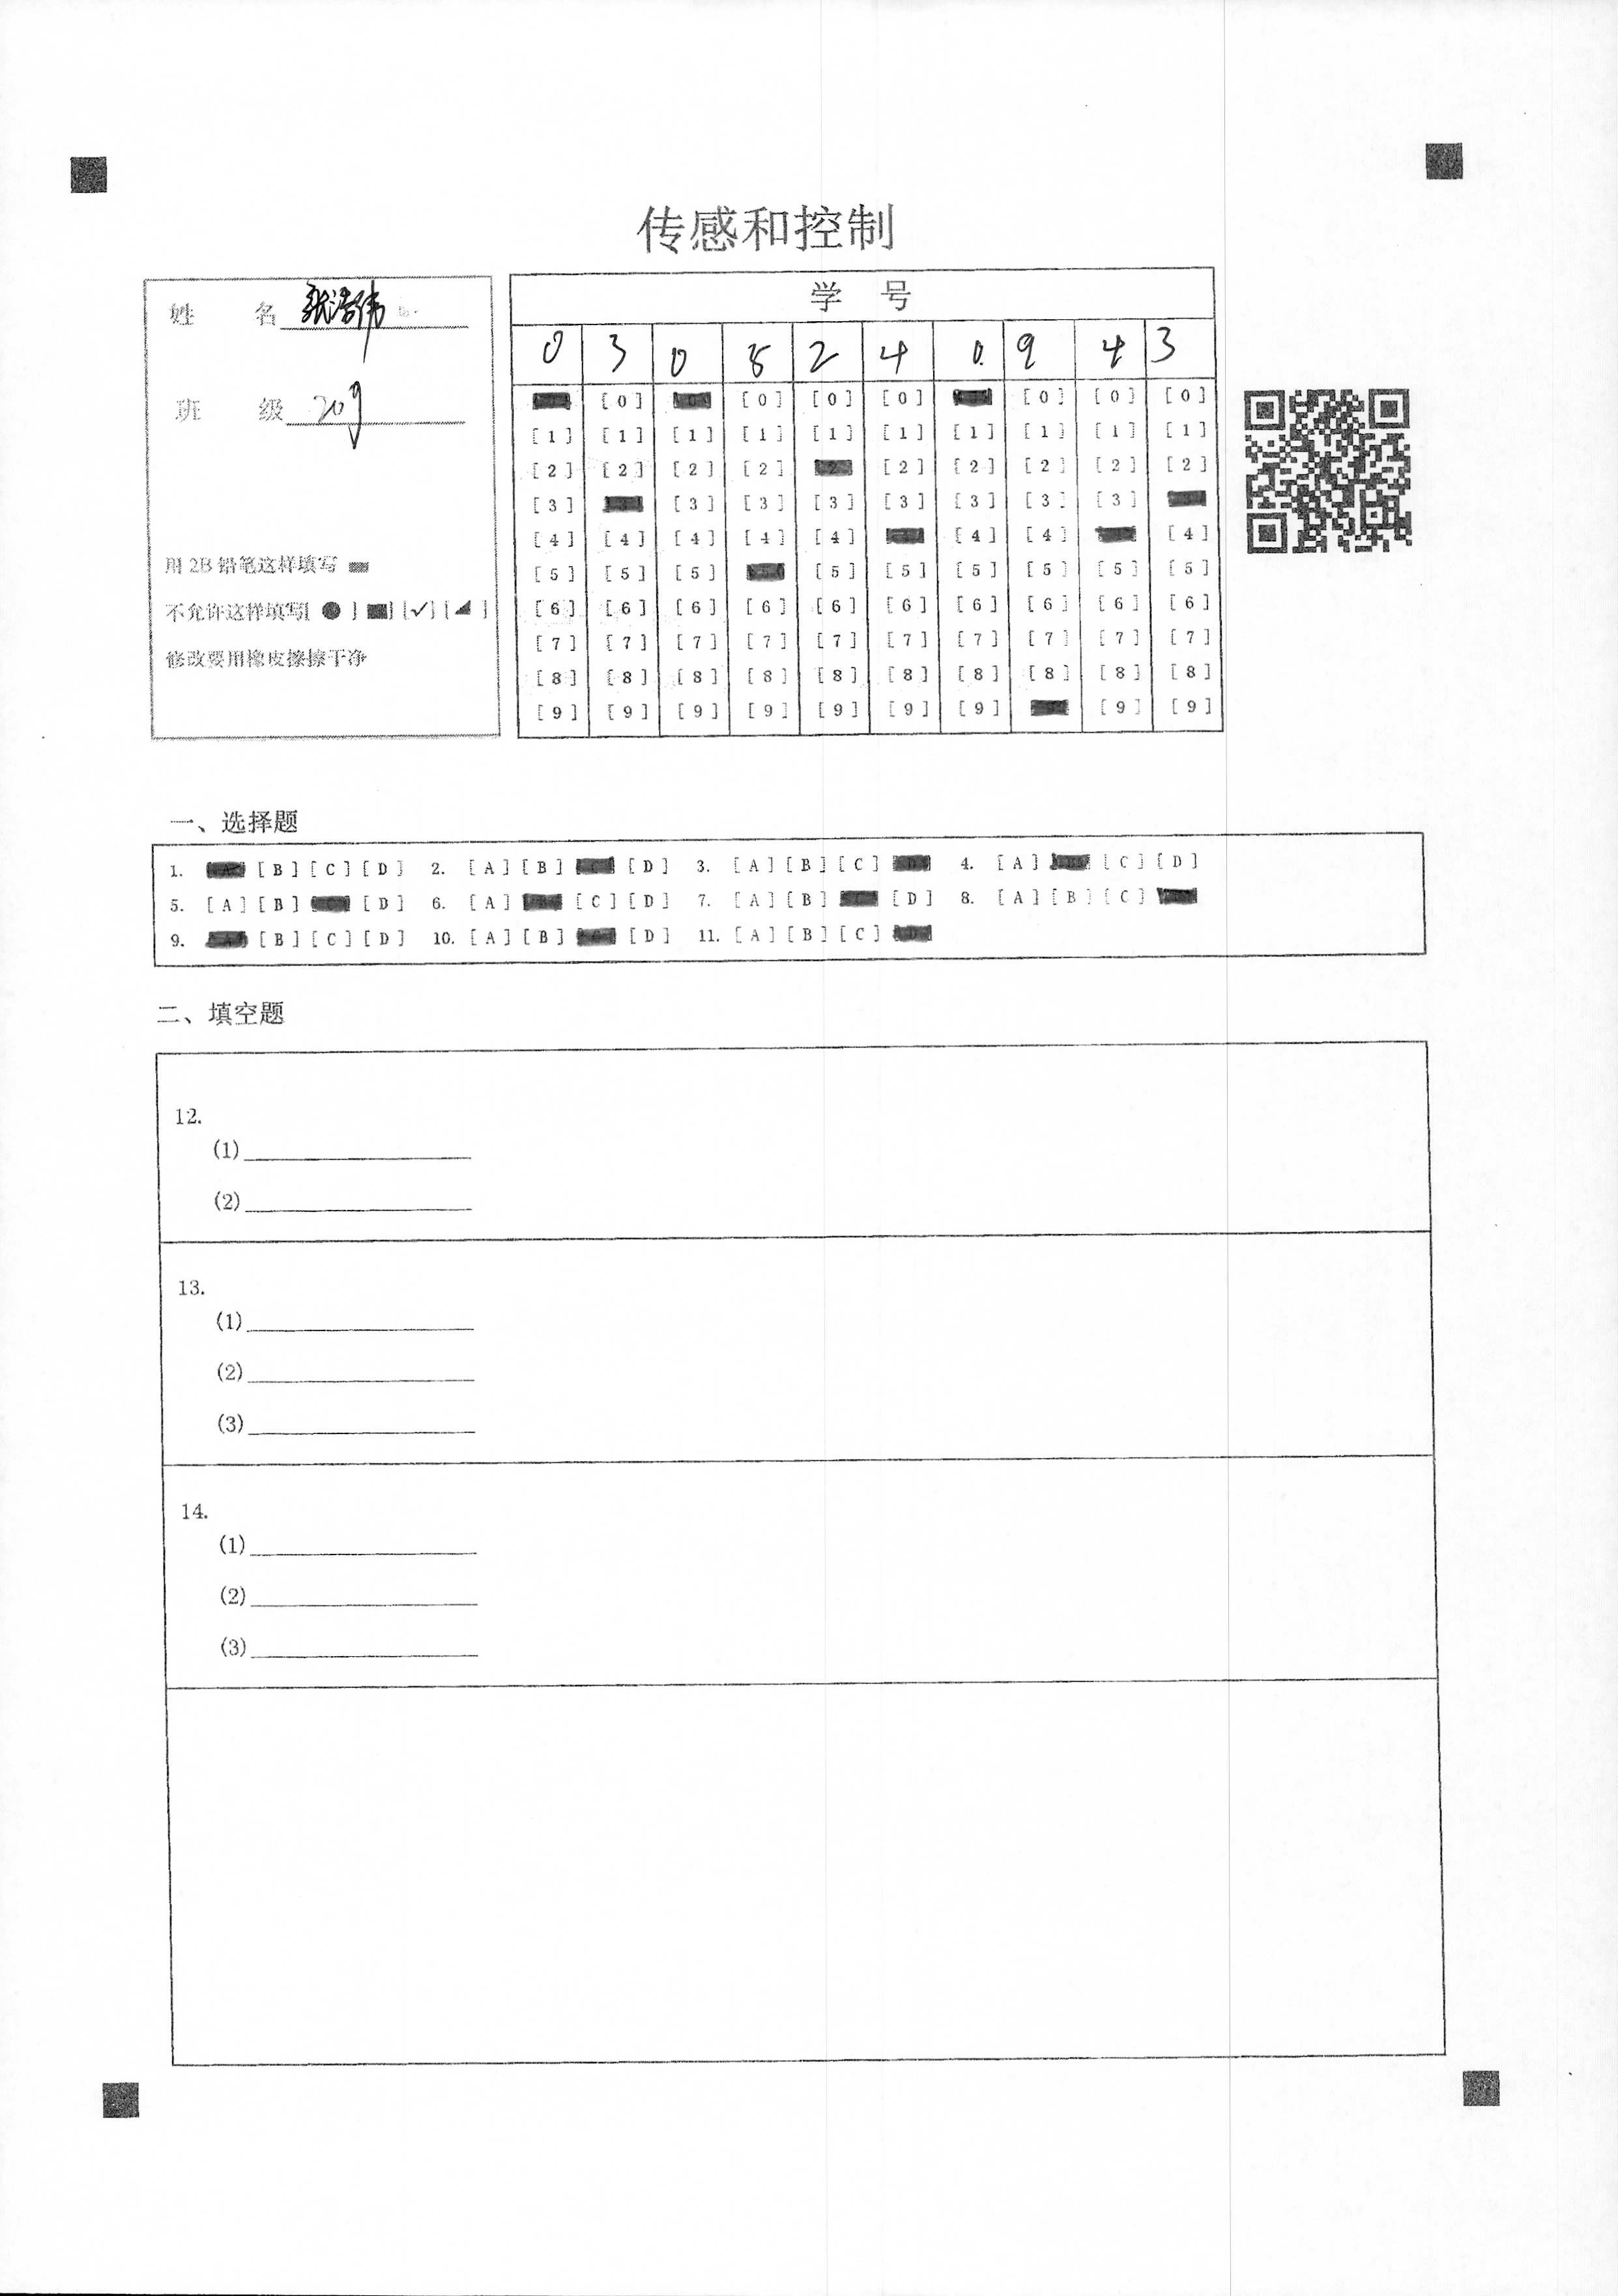 传感和控制
姓 名 张浩伟
班 级 209
用 2B 铅笔这样填写
不允许这样填写[ ● ] [■] [✓] [◢ ]
修改要用橡皮擦擦干净
学 号
0 3 0 5 2 4 0 9 4 3
[0] [0] [0] [0] [0] [0] [0]
[1] [1] [1] [1] [1] [1] [1] [1] [1] [1]
[2] [2] [2] [2] [2] [2] [2] [2] [2] [2]
[3] [3] [3] [3] [3] [3] [3] [3]
[4] [4] [4] [4] [4] [4] [4] [4]
[5] [5] [5] [5] [5] [5] [5] [5] [5]
[6] [6] [6] [6] [6] [6] [6] [6] [6] [6]
[7] [7] [7] [7] [7] [7] [7] [7] [7] [7]
[8] [8] [8] [8] [8] [8] [8] [8] [8] [8]
[9] [9] [9] [9] [9] [9] [9] [9] [9]
一、选择题
1. [A] [B] [C] [D] 2. [A] [B] [D] 3. [A] [B] [C] 4. [A] [C] [D]
5. [A] [B] [D] 6. [A] [C] [D] 7. [A] [B] [D] 8. [A] [B] [C]
9. [B] [C] [D] 10. [A] [B] [D] 11. [A] [B] [C]
二、填空题
12.
(1)
(2)
13.
(1)
(2)
(3)
14.
(1)
(2)
(3)